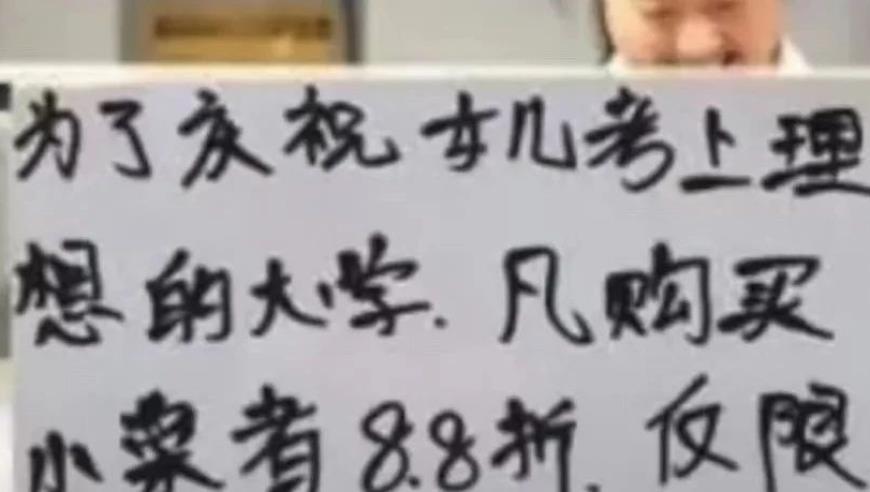 为了庆祝女儿考上理
想的大学.凡购买
小菜者8.8折.仅限